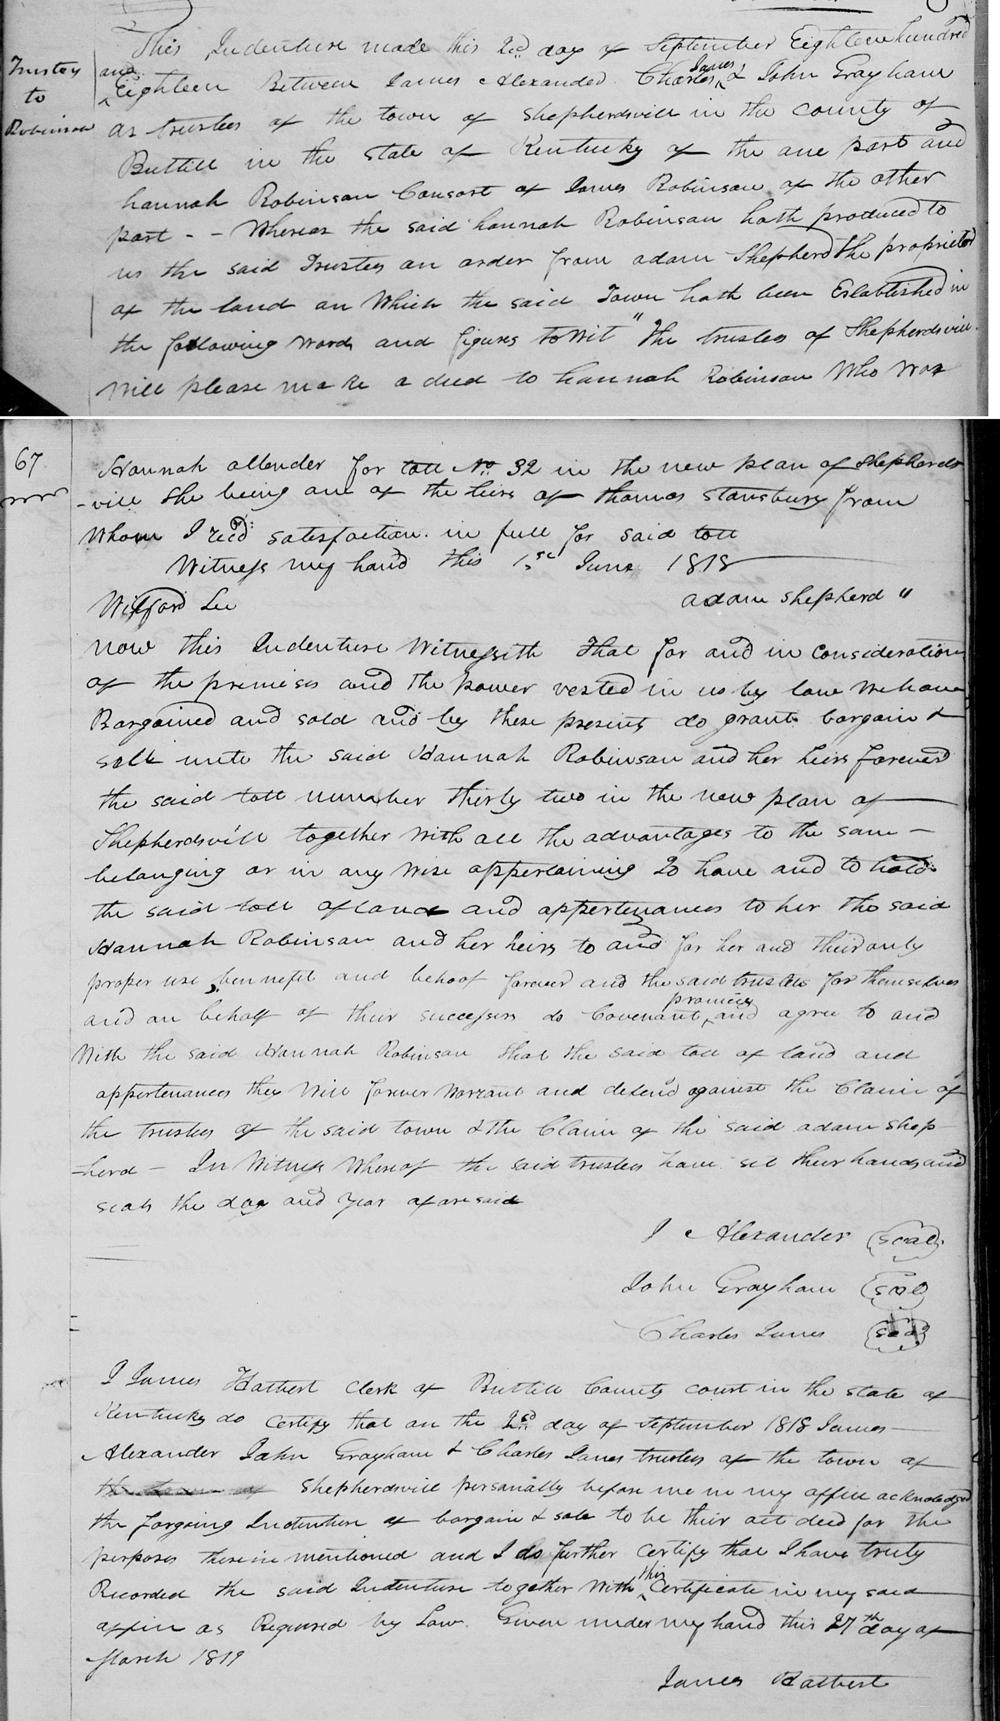 This Indenture made this 2nd day of September Eighteen hundred
Trustees
to
Robinson
and
Eighteen Between James Alexander Charles James & John Grayham
as trustees of the town of Shepherdsvill in the county of
Bullitt in the state of Kentucky of the one part and
hannah Robinson Consort of James Robinson of the other
part - - Whereas the said hannah Robinson hath produced to
us the said Trustees an order from adam Shepherd the proprietor
of the land on Which the said Town hath been Established in
the following words and figures to Wit " The trustees of Shepherdsvill
Will please make a deed to hannah Robinson Who Was
67
Hannah allender for lott No. 32 in the new plan of Shepherds
-vill She being one of the heirs of thomas Stansbury from
Whom I recd. satisfaction in full for said lott
Witness my hand this 1st June 1818
Wilford Lee adam Shepherd "
now this Indenture Witnessith That for and in consideration
of the premises and the power vested in us by law We have
Bargained and sold and by these presents do grant bargain &
sell unto the said Hannah Robinson and her heirs forever
the said lott number thirty two in the new plan of
Shepherdsvill together With all the advantages to the same -
belonging or in any Wise appertaining To have and to hold
the said lott of land and appertenances to her the said
Hannah Robinson and her heirs to and for her and their only
proper use, bennefit and behoof forever and the said trustees for themselves
and on behalf of their successors do Covenant, promise and agree to and
With the said Hannah Robinson that the said lott of land and
appertenances they Will forever Warrant and defend against the Claim of
the trustees of the said town & the Claim of the said adam Shep
-herd - In Witness Whereof the said trustees have set their hands and
seals the day and year aforesaid
J Alexander (seal)
John Grayham (seal)
Charles James (seal)
I James Halbert Clerk of Bullitt County court in the state of
Kentucky do certify that on the 2nd day of September 1818 James -
Alexander John Grayham & Charles James trustees of the town of
the town of Shepherdsvill personally before me in my office acknowledged
the forgoing Indenture of bargain & sale to be their act deed for the
perposes therein mentioned and I do further certify that I have truly
Recorded the said Indenture together With this Certificate in my said
office as Required by Law. Given under my hand this 27th day of
March 1819
James Halbert